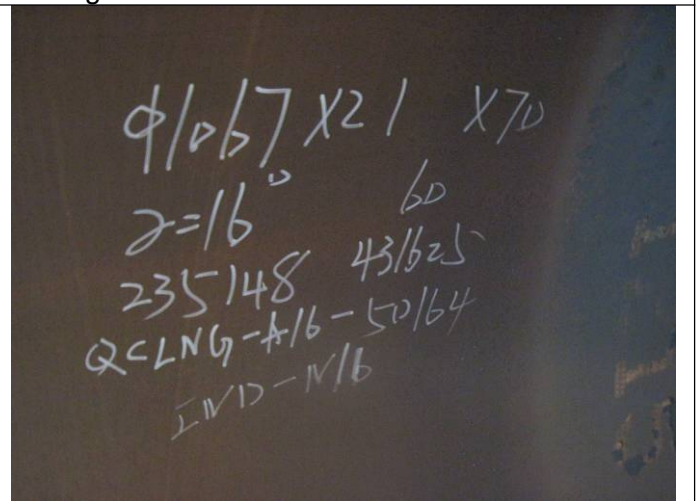 φ1067 X21 X70
α=16° 60
235148 431625
QCLNG-A16-50164
IND-N16